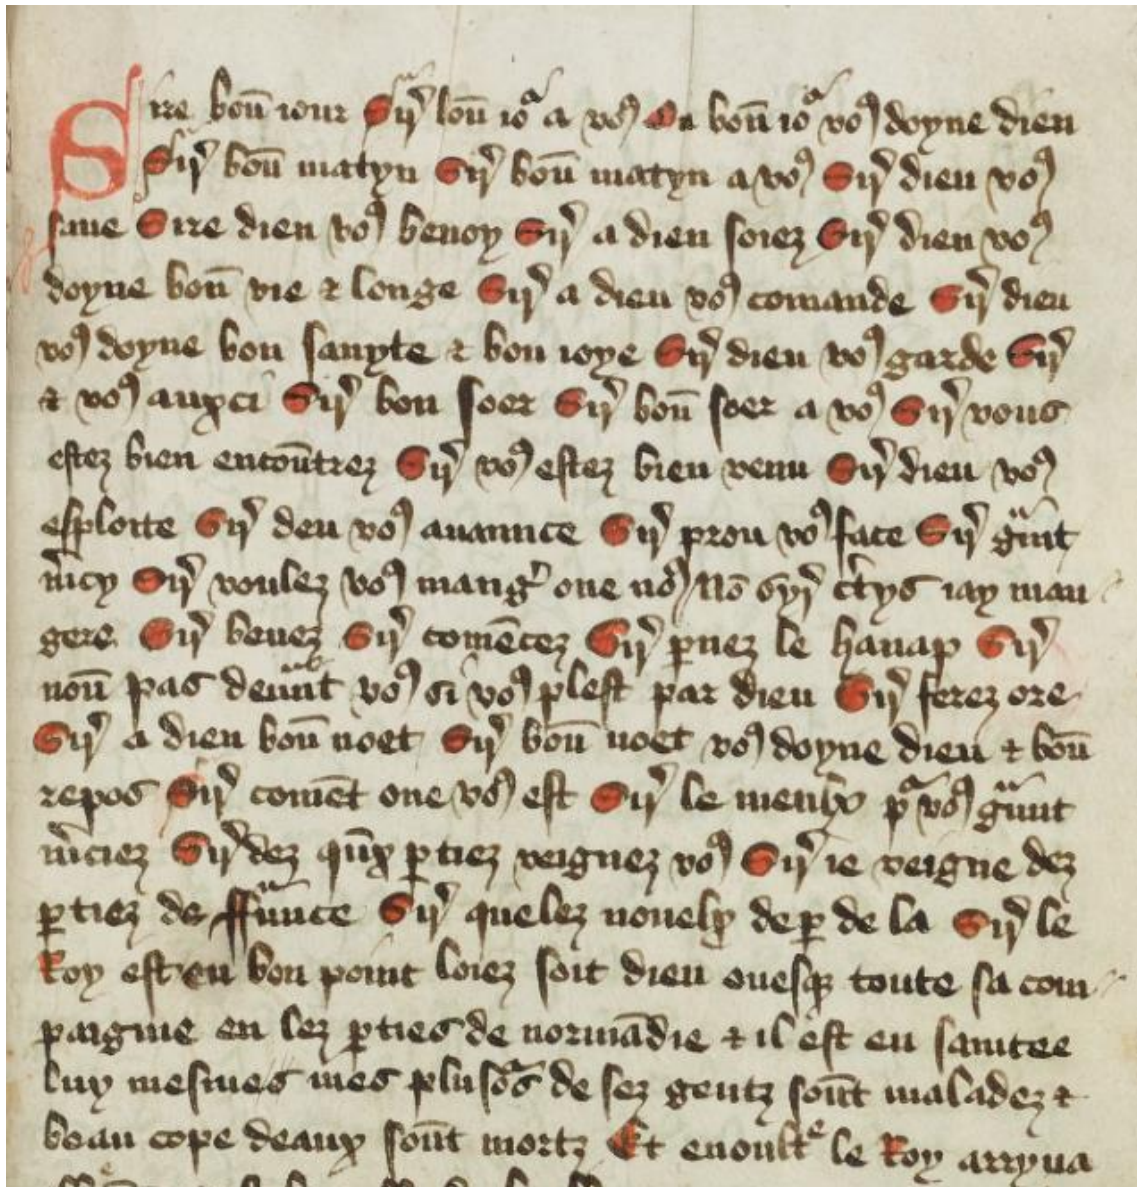 Sire boū iour Sirͤ boū ioᵃ a voꝰ boū ioᵃ voꝰ doyne dieu
Sirͤ boū matyn Sirͤ boū matyn a voꝰ Sirͤ dieu voꝰ
saue Sire dieu voꝰ benoy Sirͤ a dieu soiez Sirͤ dieu voꝰ
doyne boū vie ⁊ longe Sirͤ a dieu voꝰ comande Sirͤ dieu
voꝰ doyne bon sanyte ⁊ bon ioye Sirͤ dieu voꝰ garde Sirͤ
⁊ voꝰ auxci Sirͤ bon soer Sirͤ boū soer a voꝰ Sirͤ vous
estez bien encoūtrez Sirͤ voꝰ estez bien venu Sirͤ dieu voꝰ
esploite Sirͤ deu voꝰ auaunce Sirͤ prou voꝰ face Sirͤ gᵃunt
m̄cy Sirͤ voulez voꝰ mangͤ oue noꝰ Nō syrͤ c̄tys iay man
gere Sirͤ beuez Sirͤ comēcez Sirͤ ꝑnez le hanap Sirͤ
noū pas deuᵃnt voꝰ si voꝰ plest par dieu Sirͤ ferez ore
Sirͤ a dieu boū noet Sirͤ boū noet voꝰ doyne dieu ⁊ boū
repos Sirͤ comēt oue voꝰ est Sirͤ le pᵃ voꝰ gᵃunt
m̄ciez Sirͤ dez qūx ꝑtiez veignez voꝰ Sirͤ ie veigne dez
ꝑtiez de ffᵃunce Sirͤ quelez nouelx de ꝑ de la Sirͤ le
Roy est en bon point loiez soit dieu ouesqꝫ toute sa com
paignie en lez ꝑties de normādie ⁊ il est en sanitee
luy mesmes mes plusoᵃs de sez gentz soūt maladez ⁊
beau cope deaux soūt mortz Et enoultͤ le Roy arryua